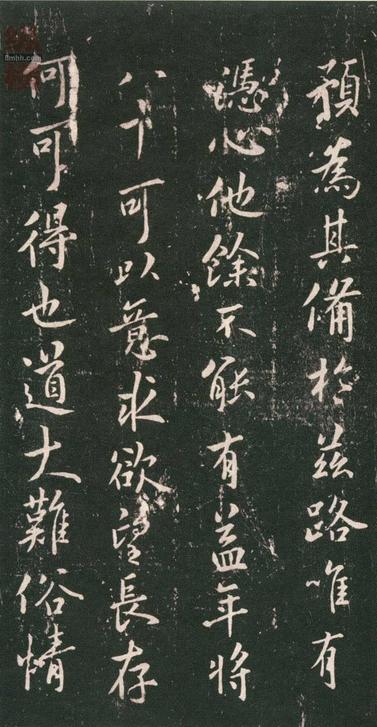 預為其備於茲路唯有
憑心他餘不能有益年將
八十可以意求欲望長存
何可得也道大難俗情